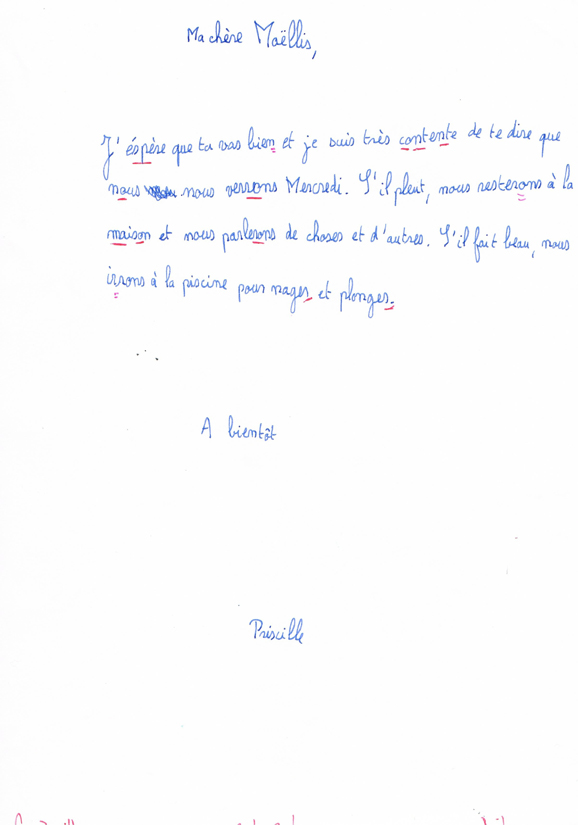 Ma chère Maëllis,
J'éspère que tu vas bien et je suis très contente de te dire que
nous nous verrons Mercredi. S'il pleut, nous resterons à la
maison et nous parlerons de choses et d'autres. S'il fait beau, nous
irrons à la piscine pour nager et plonger.
A bientôt
Priscille